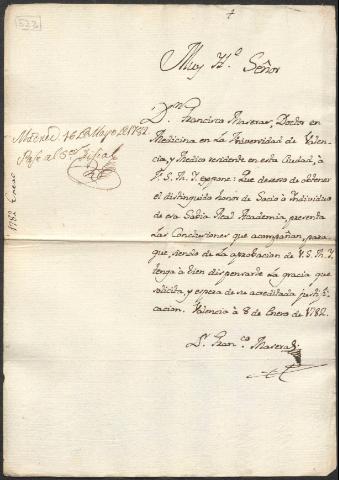 532
+
Muy Ite. Señor
Dn. Francisco Maseras, Doctor en
Medicina en la Universidad de Valen-
cia, y Medico residente en esta Ciudad, à
V. S. M. Y. expone: Que deseoso de obtener
el distinguido honor de Socio ò Individuo
de esa Sabia Real Academia, presenta
las Conclusiones que acompañan, para
que, siendo de la aprobacion de V. S. M. Y.
tenga à bien dispensarle la gracia que
solicita, y espera de su acreditada justifi-
cacion. Valencia à 8 de Enero de 1782.
Dr. Franco. Maseras.
Madrid 16 de Mayo de 1782.
Pase al Sor. Fiscal
1782 Enero